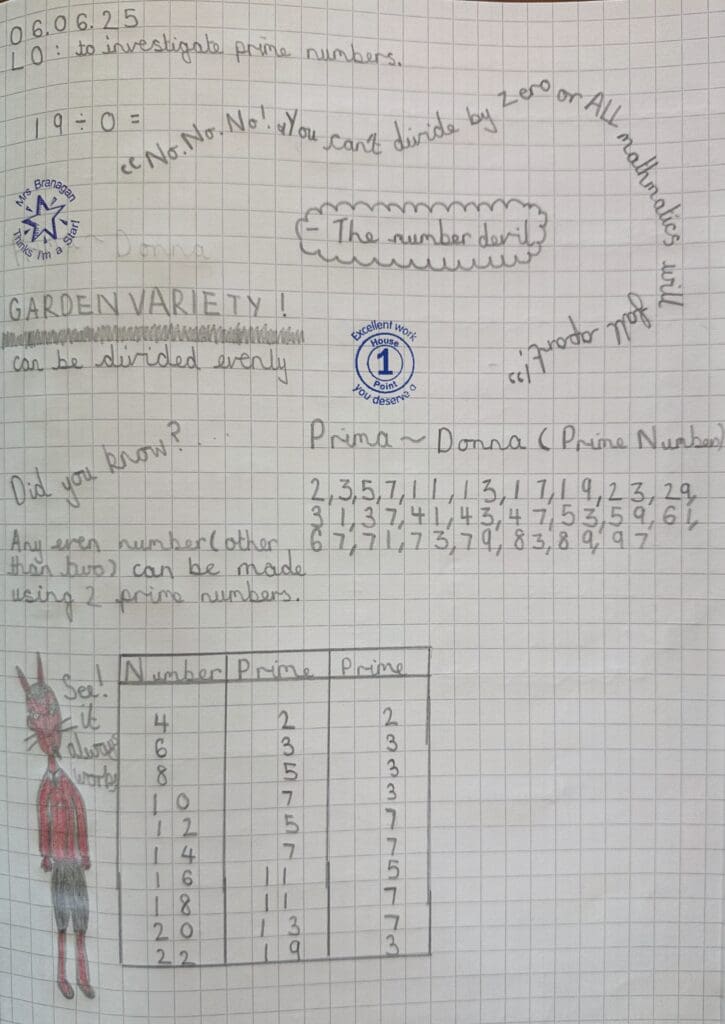 06.06.25
LO: to investigate prime numbers.
19 ÷ 0 =
"No. No. No! "You can't divide by zero or ALL mathmatics will fall apart!"
Mrs. Branagan
Thinks I'm a Star!
Donna
- The number devil
GARDEN VARIETY!
can be divided evenly
Excellent work
House
1
Point
you deserve a
Did you know?...
Any even number (other
than two) can be made
using 2 prime numbers.
Prima ~ Donna (Prime Number)
2, 3, 5, 7, 11, 13, 17, 19, 23, 29,
31, 37, 41, 43, 47, 53, 59, 61,
67, 71, 73, 79, 83, 89, 97
See!
it
always
works
Number Prime Prime
4 2 2
6 3 3
8 5 3
10 7 3
12 5 7
14 7 7
16 11 5
18 11 7
20 13 7
22 19 3